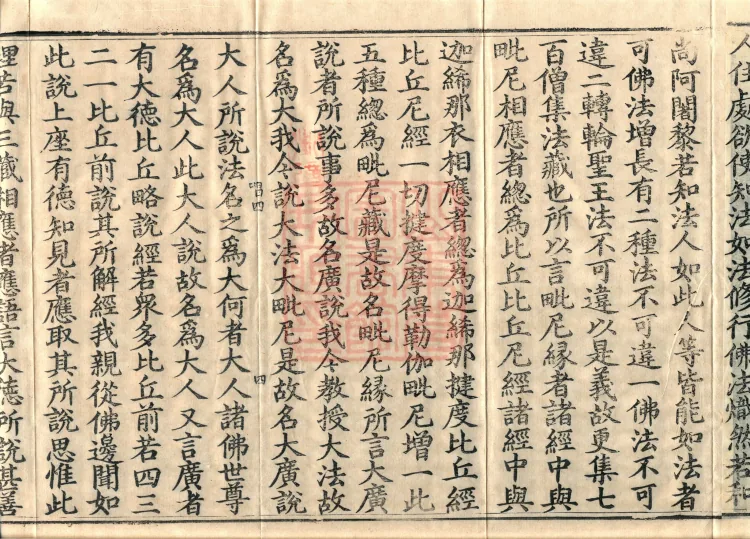 人住處欲使知法如法修行佛法熾然若和
尚阿闍黎若知法人如此人等皆能如法者
可佛法增長有二種法不可違一佛法不可
違二轉輪聖王法不可違以是義故更集七
百僧集法藏也所以言毗尼緣者諸經中與
毗尼相應者總為比丘比丘尼經諸經中與
迦絺那衣相應者總為迦絺那揵度比丘經
比丘尼經一切揵度摩得勒伽毗尼增一此
五種總為毗尼藏是故名毗尼緣所言大廣
說者所說事多故名廣說我今教授大法故
名為大我今說大法大毗尼是故名大廣說
大人所說法名之為大何者大人諸佛世尊
名為大人此大人說故名為大人又言廣者
有大德比丘略說經若眾多比丘前若四三
二一比丘前說其所解經我親從佛邊聞如
此說上座有德知見者應取其所說思惟此
理若與三藏相應者應語言大德所說甚善
四